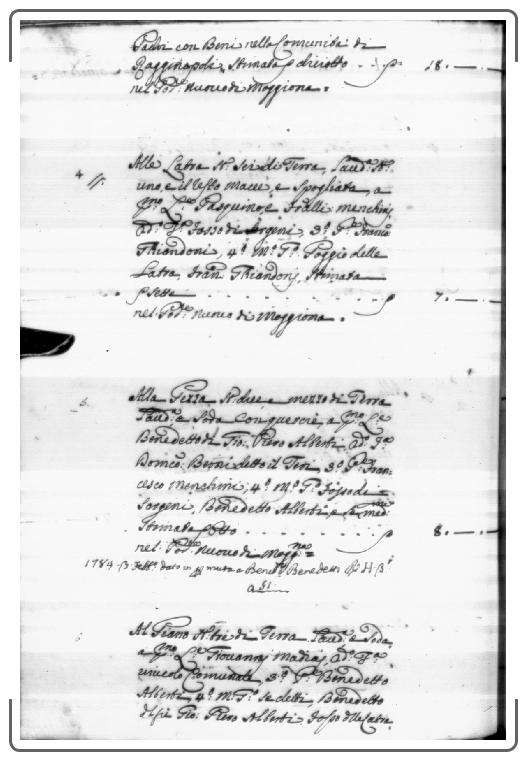 Padri con Beni nella Comunità di
Ragginopoli, Stimata p diciotto - - p 18. —
nel Pod.e nuovo di Moggiona.
4
Alle Latra N.o Sei di Terra, Laud.a N.o
uno, e il resto Macie, e Spogliata, a
p.mo L.e Pasquino, e Fratelli Menchini,
2.do Fosso di Sorgeni, 3.o Franco
Ghiandoni, 4.o Poggio delle
Latra, Fran. Ghiandoni, Stimata
p Sette - - - - - - p 7. —
nel Pod.e nuovo di Moggiona.
5
Alla Pezza N. due e mezzo di Terra
Laud.a e Soda con querce, a p.mo L.e
Benedetto di Gio: Piero Alberti, 2.do
Domco. Berni detto il Teri, 3.o Fran-
cesco Menchini, 4.o Fosso di
Sorgeni, Benedetto Alberti, e se med.mi
Stimata p Otto - - - - - p 8. —
nel Pod.e nuovo di Mogg.na
1784 dato in a Bened.o Benedetti
a 51
6
Al Piano N. tre di Terra Laud.a e Soda
a p.mo L.e Giovanni Mattia, 2.do
vicolo Comunale, 3.o Benedetto
Alberti, 4.o se detti, Benedetto
Gio: Piero Alberti, Fosso delle Latra